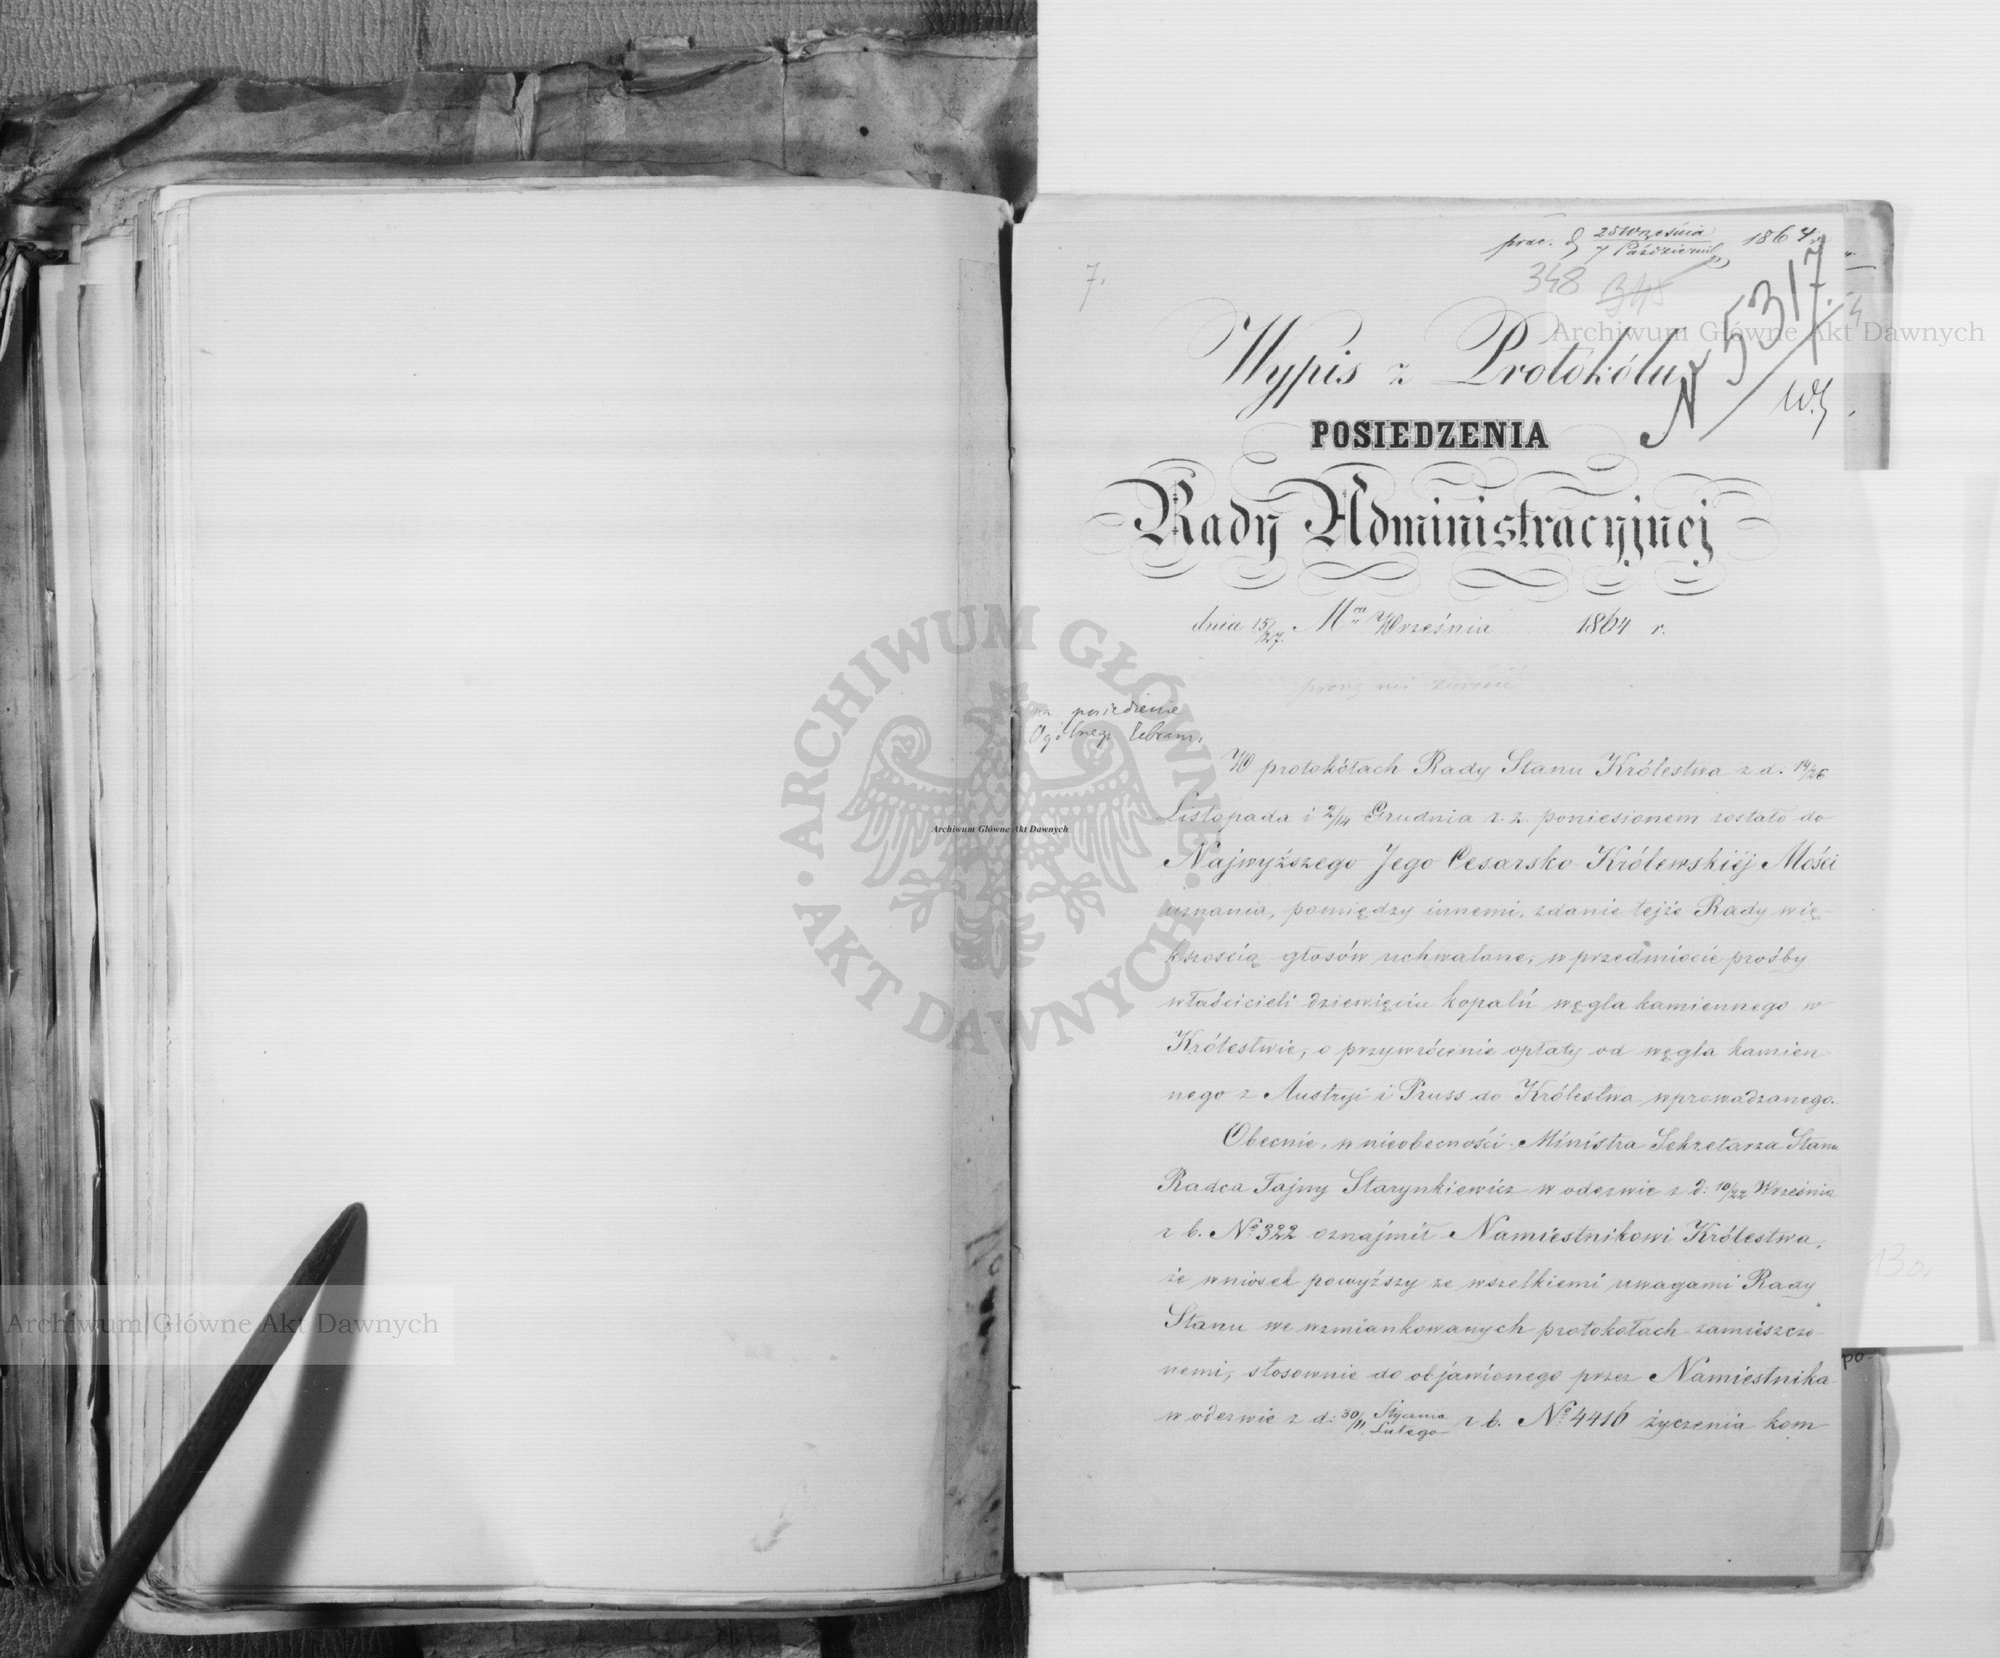 prac. d. 25 Września
7 Październik 1864 r.
7.
348
N 5317.
Wypis z Protokółu
POSIEDZENIA
Rady Administracyjnej
dnia 15/27. Września 1864 r.
na posiedzenie
Ogólnego Zebrani.
W protokółach Rady Stanu Królestwa z d. 14/26
Listopada i 2/14 Grudnia r. z. poniesionem zostało do
Najwyższego Jego Cesarsko Królewskiéj Mości
uznania, pomiędzy innemi, zdanie tejże Rady wię-
kszością głosów uchwalone, w przedmiocie prośby
właścicieli dziewięciu kopalń węgla kamiennego w
Królestwie, o przywrócenie opłaty od węgla kamien
nego z Austryi i Pruss do Królestwa wprowadzanego.
Obecnie, w nieobecności Ministra Sekretarza Stanu
Radca Tajny Starynkiewicz w odezwie z d: 10/22 Września
r b. No 322 oznajmił Namiestnikowi Królestwa,
że wniosek powyższy ze wszelkiemi uwagami Rady
Stanu we wzmiankowanych protokołach zamieszczo-
nemi, stosownie do objawionego przez Namiestnika
w odezwie z d: 30/11 Stycznia Lutego r b. No 4416 życzenia kom
13a
po-
Archiwum Główne Akt Dawnych
Archiwum Główne Akt Dawnych
Archiwum Główne Akt Dawnych
ARCHIWUM GŁÓWNE • AKT DAWNYCH •